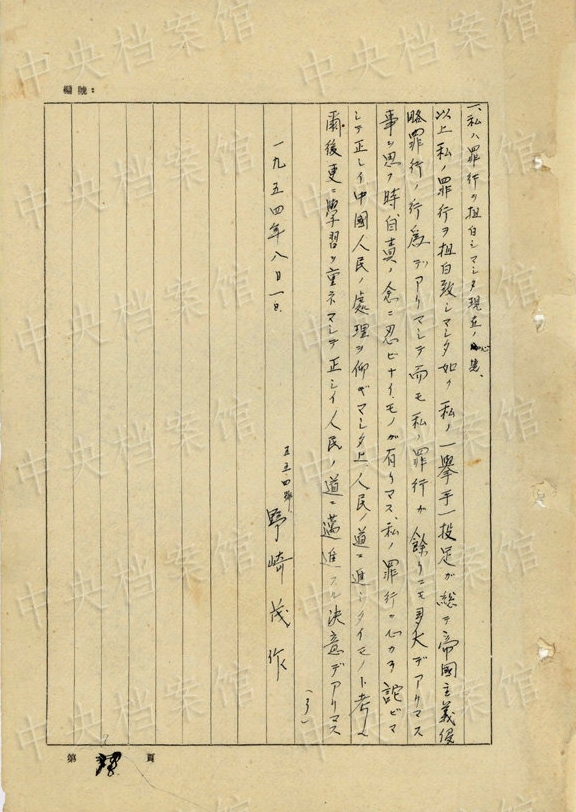 編號:
一、私ハ罪行ヲ坦白シマシタ現在ノ心境、
以上私ノ罪行ヲ坦白致シマシタ如ク私ノ一擧手一投足ガ総テ帝國主義侵
略罪行ノ行為デアリマシテ而モ私ノ罪行ガ餘リニモ多大デアリマス
事ヲ思フ時自責ノ念ニ忍ビナイモノガ有リマス、私ノ罪行ヲ心カラ詫ビマ
シテ正シイ中國人民ノ處理ヲ仰ギマシタ上人民ノ道ニ進ミタイモノト考ヘ
爾後更ニ學習ヲ重ネマシテ正シイ人民ノ道ニ邁進スル決意デアリマス
(了)
一九五四年八月一日
五五四號
野崎茂作
第 頁
中央档案馆